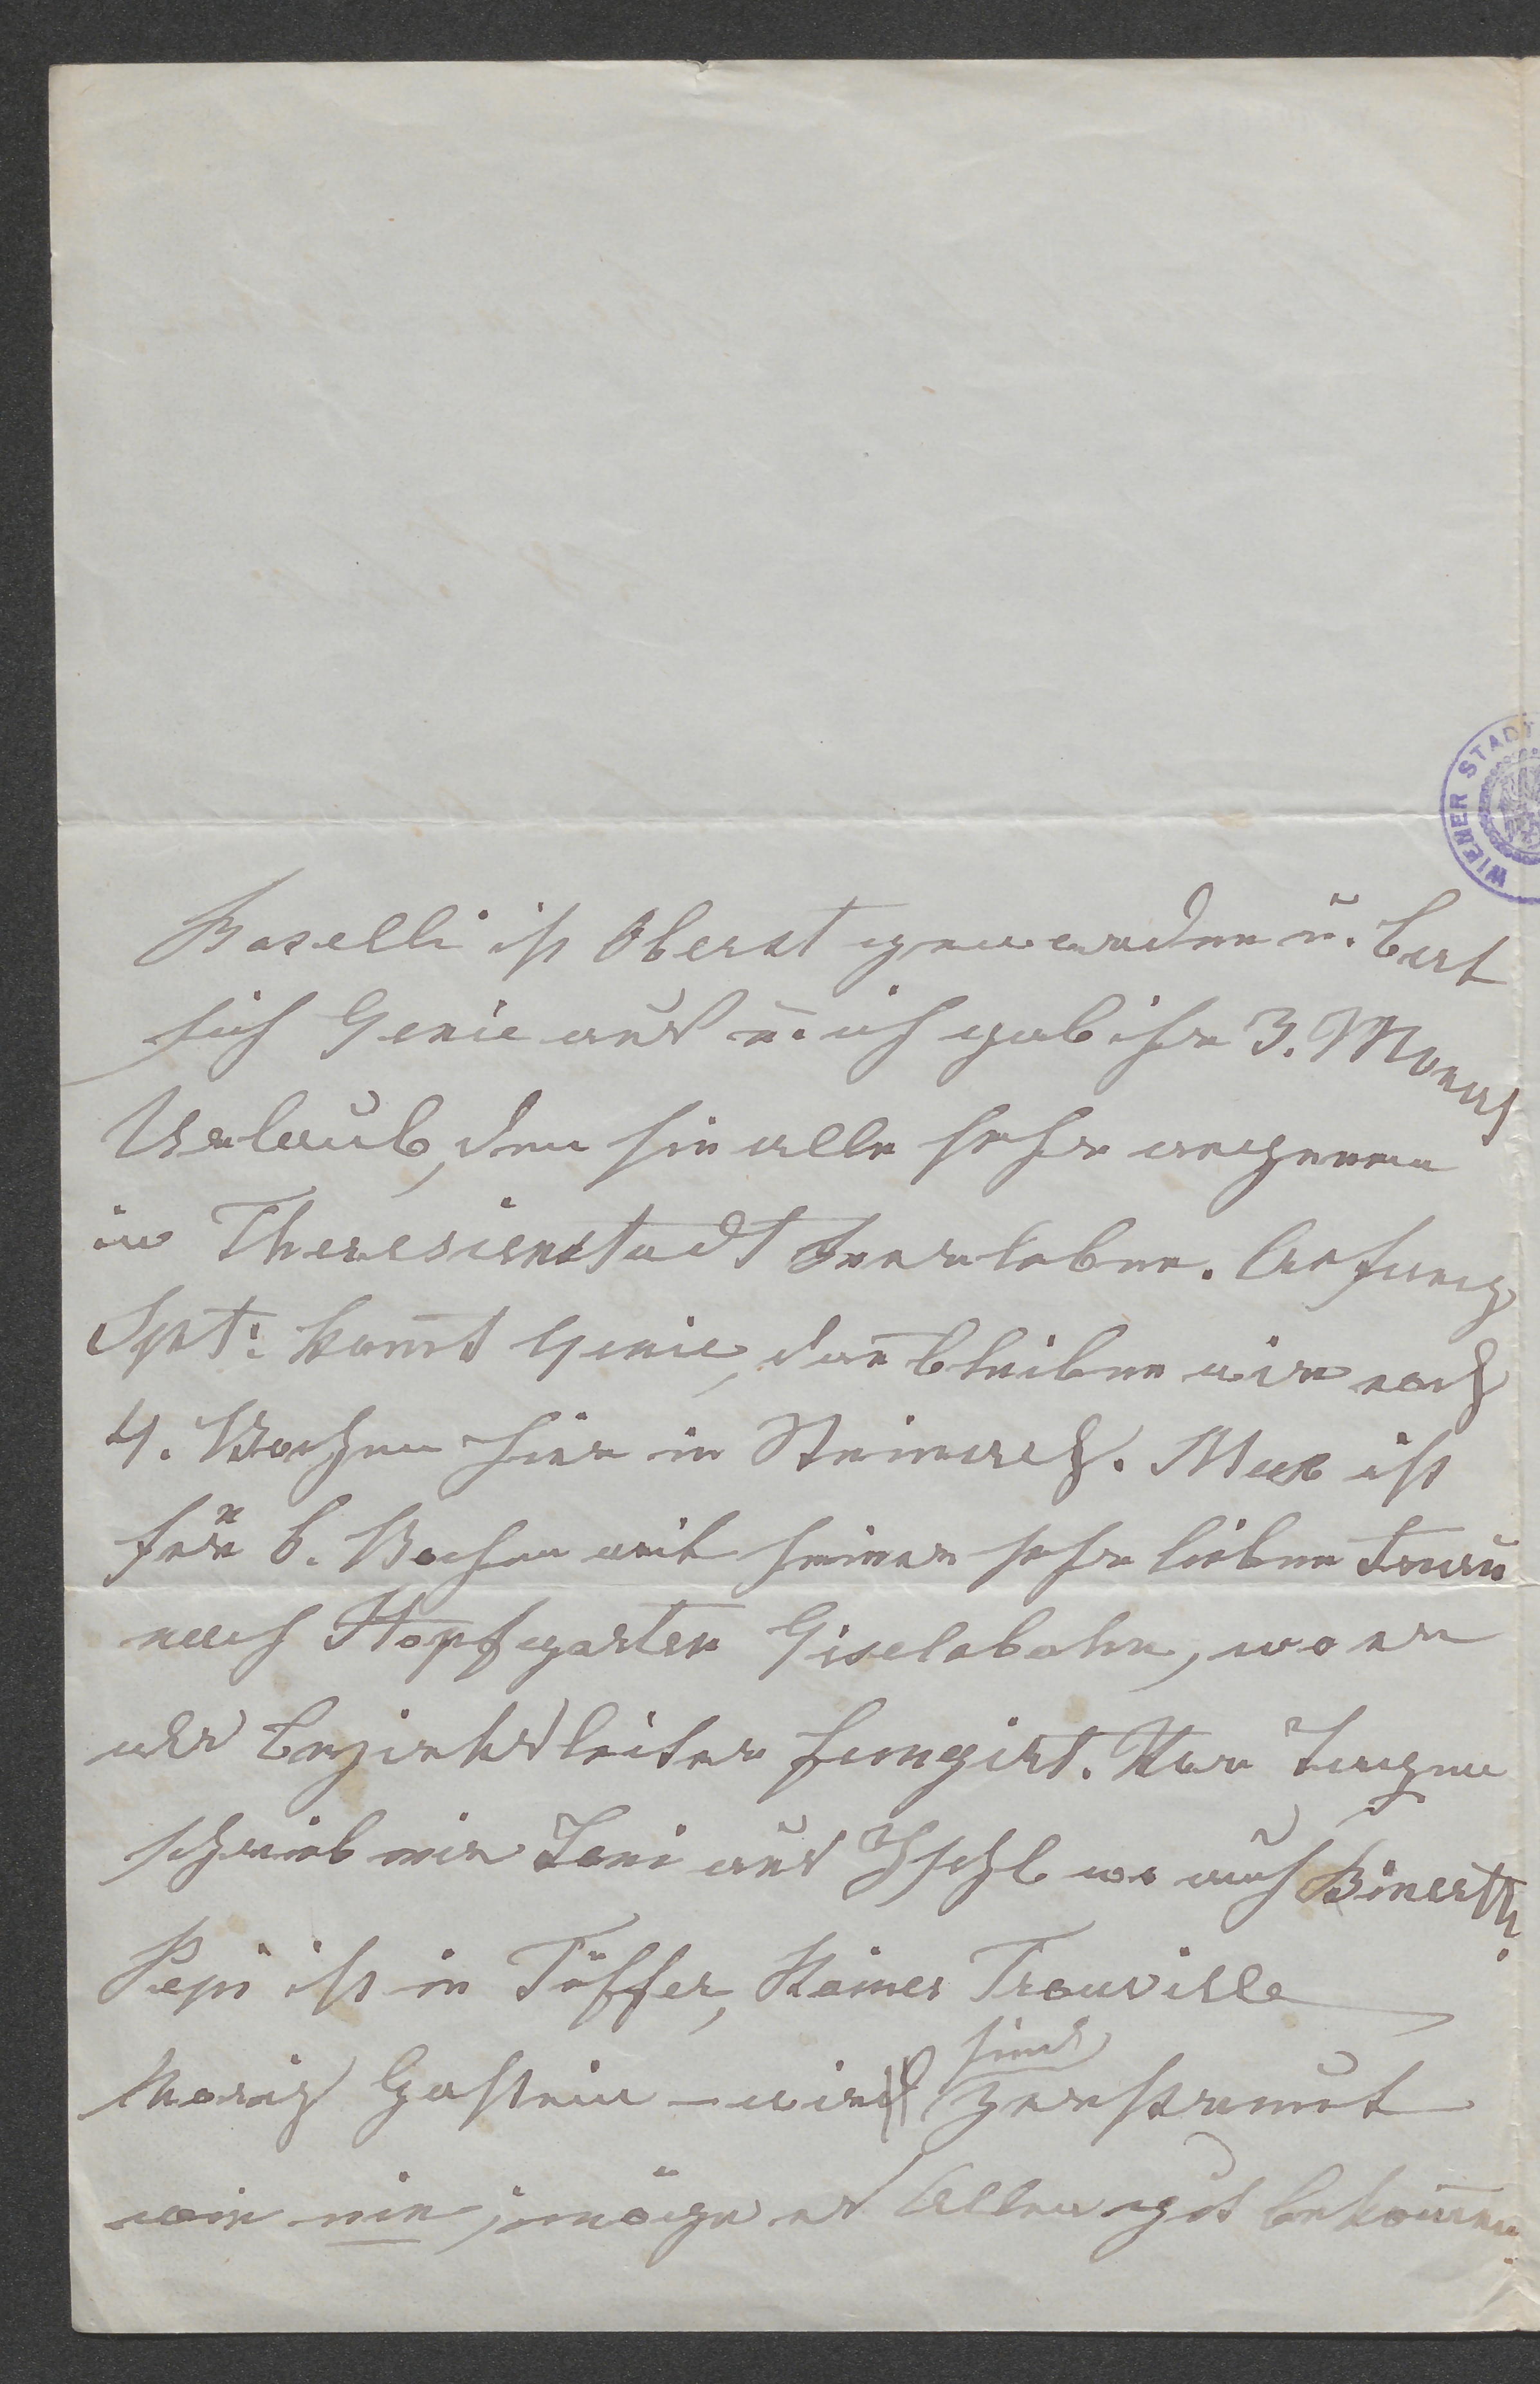 WIENER STADT
Baselli ist Oberst geworden u. bat
sich Genie aus u. ich gab ihr 3. Monat
Urlaub, den sie alle sehr angenem
in Theresienstadt verleben. Anfang
Spt: kom̅t Genie, dan̅ bleiben wir noch
4. Wochen hier in Steinach. Max ist
für 6. Wochen mit seiner sehr lieben Frau
nach Hopfgarten Giselabahn, wo er
als Bezirksleiter fungirt. Vor Tagen
schrieb mir Toni aus Ischl wo auch Bienerth.
Pepi ist in Tüffer, Rainer Trouville
Moriz Gastein – wir sind zerstreut
wie nie, möge es Allen gut bekom̅en.